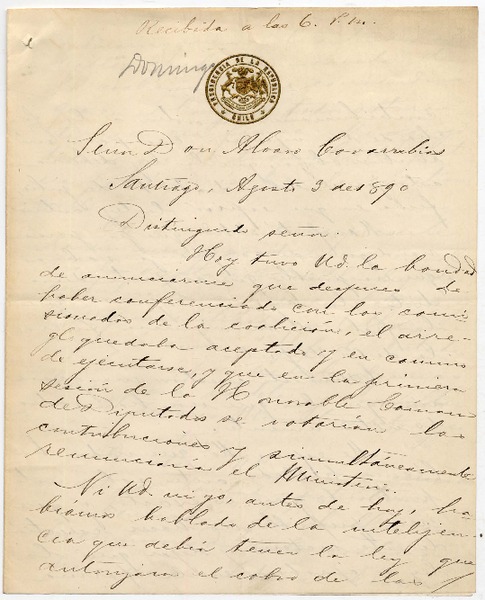 Recibida a las 6. P.m.
Domingo
PRESIDENCIA DE LA REPUBLICA
CHILE
Señor Don Alvaro Covarrubias
Santiago, Agosto 3 de 1890
Distinguido señor:
Hoy tuvo Ud. la bondad
de anunciarme que despues de
haber conferenciado con los comi-
sionados de la coalicion, el arre-
glo quedaba aceptado y en camino
de ejecutarse, y que en la primera
sesión de la Honorable Cámara
de Diputados se votarian las
contribuciones y simultáneamente
renunciaria el Ministerio.
Ni Ud. ni yo, antes de hoy, ha-
biamos hablado de la intelijen-
cia que debia tener la ley que
autorizara el cobro de las